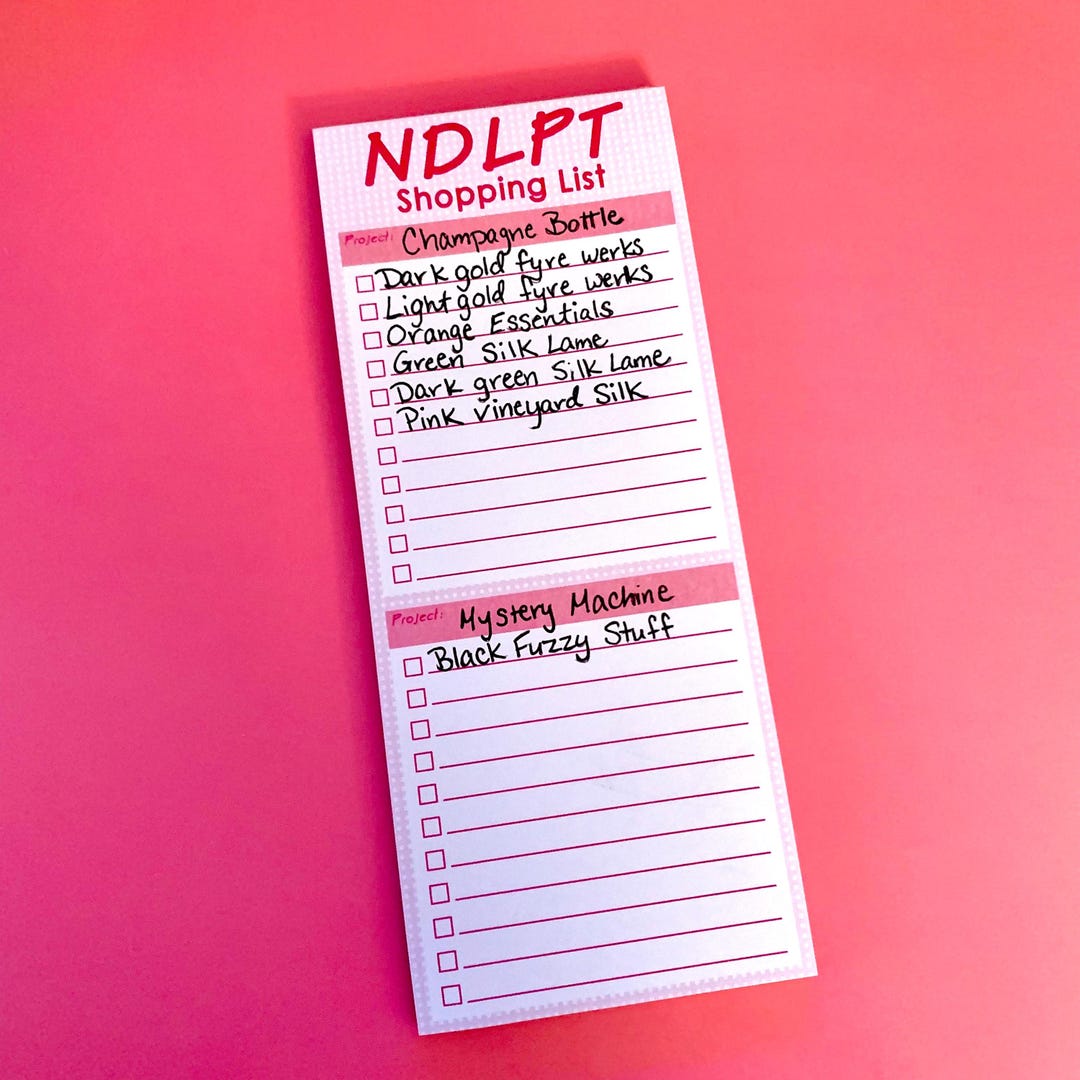 NDLPT
Shopping List
Project: Champagne Bottle
Dark gold fyre werks
Light gold fyre werks
Orange Essentials
Green Silk Lame
Dark green Silk Lame
Pink Vineyard Silk
Project: Mystery Machine
Black Fuzzy Stuff